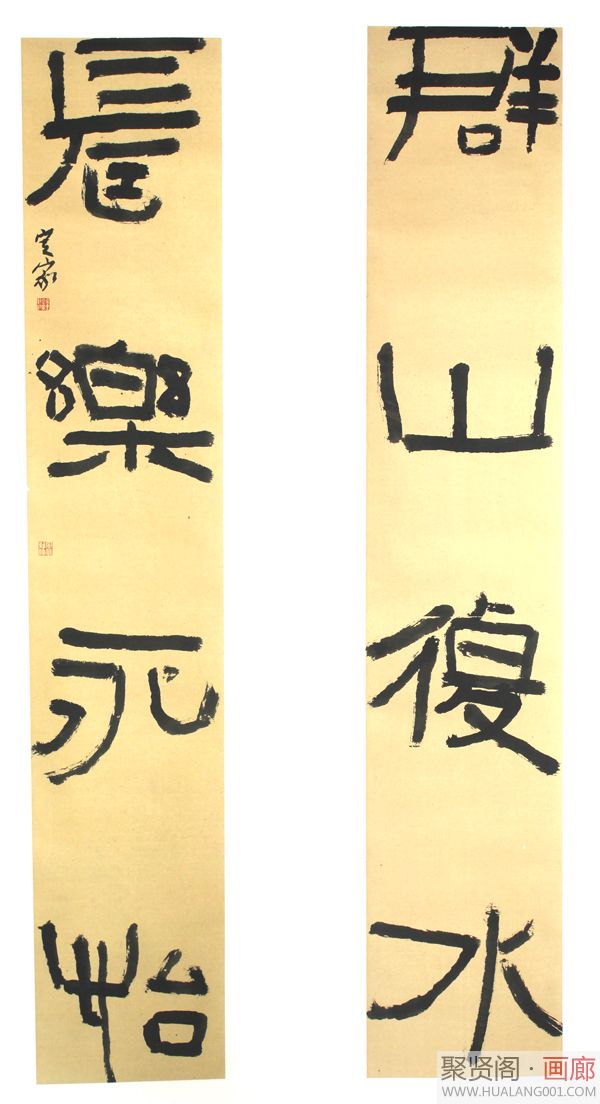 群山復水
長樂永怡
聚贤阁·画廊
WWW.HUALANG001.COM